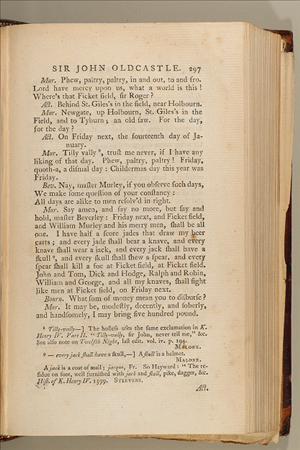 SIR JOHN OLDCASTLE. 297
Mur. Phew, paltry, paltry, in and out, to and fro.
Lord have mercy upon us, what a world is this!
Where's that Ficket field, sir Roger?
Act. Behind St. Giles's in the field, near Holbourn.
Mur. Newgate, up Holbourn, St. Giles's in the
Field, and to Tyburn; an old saw. For the day,
for the day?
Act. On Friday next, the fourteenth day of Ja-
nuary.
Mur. Tilly vally ⁸, trust me never, if I have any
liking of that day. Phew, paltry, paltry! Friday,
quoth-a, a dismal day: Childermas day this year was
Friday.
Bev. Nay, master Murley, if you observe such days,
We make some question of your constancy:
All days are alike to men resolv'd in right.
Mur. Say amen, and say no more, but say and
hold, master Beverley: Friday next, and Ficket field,
and William Murley and his merry men, shall be all
one. I have half a score jades that draw my beer
carts; and every jade shall bear a knave, and every
knave shall wear a jack, and every jack shall have a
skull ⁹, and every skull shall shew a spear, and every
spear shall kill a foe at Ficket field, at Ficket field.
John and Tom, Dick and Hodge, Ralph and Robin,
William and George, and all my knaves, shall fight
like men at Ficket field, on Friday next.
Bourn. What sum of money mean you to disburse?
Mur. It may be, modestly, decently, and soberly,
and handsomely, I may bring five hundred pound.
⁸ Tilly-vally—] The hostess uses the same exclamation in K.
Henry IV. Part II. "Tilly-vally, sir John, never tell me," &c.
See also note on Twelfth Night, last edit. vol. iv. p. 194.
MALONE.
⁹ — every jack shall have a skull,—] A skull is a helmet.
MALONE.
A jack is a coat of mail; jacque, Fr. So Hayward: "The re-
sidue on foot, well furnished with jack and skull, pike, dagger, &c.
Hist. of K. Henry IV. 1599. STEEVENS.
Act.